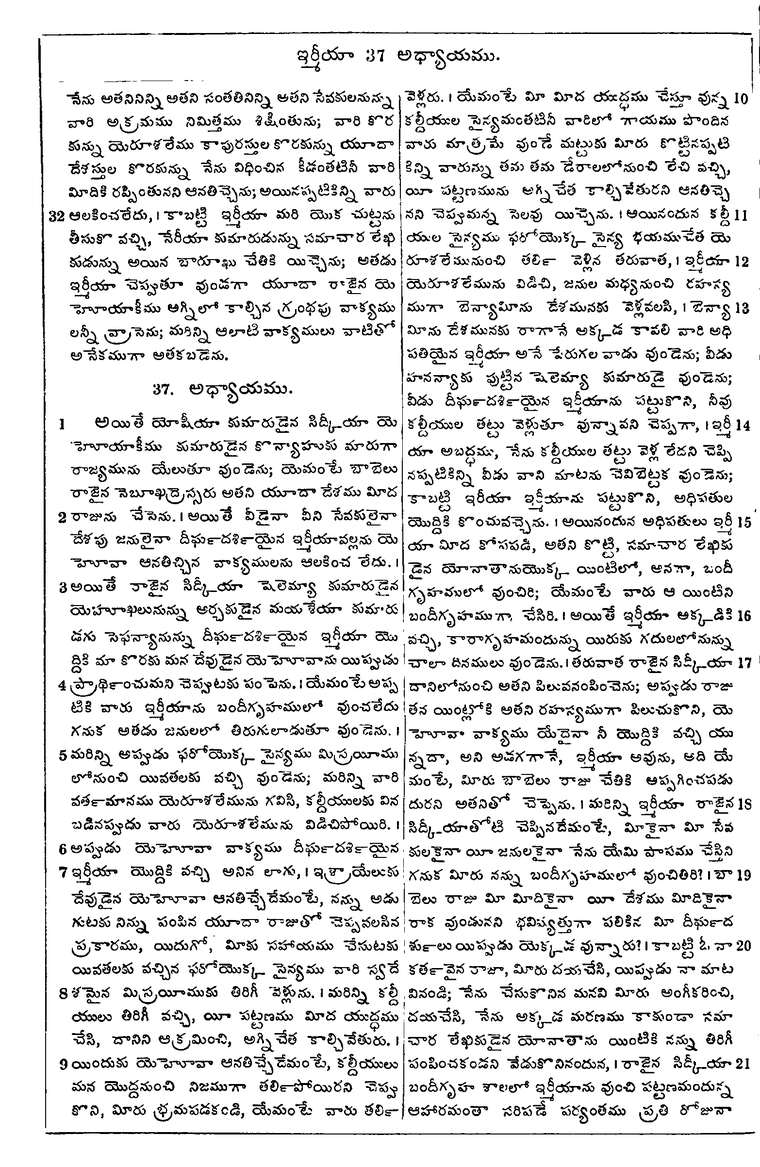 ఇర్మీయా 37 అధ్యాయము.
నేను అతనినిన్ని అతని సంతతినిన్ని అతని సేవకులనున్న
వారి అక్రమము నిమిత్తము శిక్షింతును; వారి కొర
కున్ను యెరూశలేము కాపురస్తుల కొరకున్ను యూదా
దేశస్తుల కొరకున్ను నేను విధించిన కీడంతటినీ వారి
మీదికి రప్పింతునని ఆనతిచ్చెను; అయినప్పటికిన్ని వారు
32 ఆలకించలేదు, । కాబట్టి ఇర్మీయా మరి యొక చుట్టను
తీసుకొ వచ్చి, నేరీయా కుమారుడున్ను సమాచార లేఖి
కుడున్ను అయిన బారూఖు చేతికి యిచ్చెను; అతడు
ఇర్మీయా చెప్పుతూ వుండగా యూదా రాజైన యె
హోయాకీము అగ్నిలో కాల్చిన గ్రంథపు వాక్యము
లన్నీ వ్రాసెను; మరిన్ని ఆలాటి వాక్యములు వాటితో
అనేకముగా అతకబడెను.
37. అధ్యాయము.
1 అయితే యోషీయా కుమారుడైన సిద్కీయా యె
హోయాకీము కుమారుడైన కొన్యాహుకు మారుగా
రాజ్యమును యేలుతూ వుండెను; యేమంటే బాబెలు
రాజైన నెబూఖద్రెస్సరు అతని యూదా దేశము మీద
2 రాజును చేసెను. । అయితే వీడైనా వీని సేవకులైనా
దేశపు జనులైనా దీర్ఘదర్శియైన ఇర్మీయావల్లను యె
హోవా ఆనతిచ్చిన వాక్యములను ఆలకించ లేదు. ।
3 అయితే రాజైన సిద్కీయా షెలెమ్యా కుమారుడైన
యెహూఖలునున్ను అర్చకుడైన మయశేయా కుమారు
డగు సెఫన్యానున్ను దీర్ఘదర్శియైన ఇర్మీయా యొ
ద్దికి మా కొరకు మన దేవుడైన యెహోవాను యిప్పుడు
4 ప్రార్థించుమని చెప్పుటకు పంపెను. । యేమంటే అప్ప
టికి వారు ఇర్మీయాను బందీగృహములో వుంచలేదు
గనుక అతడు జనులలో తిరుగులాడుతూ వుండెను. ।
5 మరిన్ని అప్పుడు ఫరోయొక్క సైన్యము మిస్రయీము
లోనుంచి యివతలకు వచ్చి వుండెను; మరిన్ని వారి
వర్తమానము యెరూశలేమును గవిసి, కల్దీయులకు విన
బడినప్పుడు వారు యెరూశలేమును విడిచిపోయిరి. ।
6 అప్పుడు యెహోవా వాక్యము దీర్ఘదర్శియైన
7 ఇర్మీయా యొద్దికి వచ్చి అనిన లాగు, । ఇశ్రాయేలుకు
దేవుడైన యెహోవా ఆనతిచ్చేదేమంటే, నన్ను అడు
గుటకు నిన్ను పంపిన యూదా రాజుతో చెప్పవలసిన
ప్రకారము, యిదుగో, మీకు సహాయము చేసుటకు
యివతలకు వచ్చిన ఫరోయొక్క సైన్యము వారి స్వదే
8 శమైన మిస్రయీముకు తిరిగీ వెళ్లును. । మరిన్ని కల్దీ
యులు తిరిగీ వచ్చి, యీ పట్టణము మీద యుద్ధము
చేసి, దానిని ఆక్రమించి, అగ్నిచేత కాల్చివేతురు. ।
9 యిందుకు యెహోవా ఆనతిచ్చేదేమంటే, కల్దీయులు
మన యొద్దనుంచి నిజముగా తర్లిపోయిరని చెప్పు
కొని, మీరు భ్రమపడకండి, యేమంటే వారు తర్లి
వెళ్లరు. । యేమంటే మీ మీద యుద్ధము చేస్తూ వున్న 10
కల్దీయుల సైన్యమంతటినీ వారిలో గాయము పొందిన
వారు మాత్రమే వుండే మట్టుకు మీరు కొట్టినప్పటి
కిన్ని వారున్ను తమ తమ డేరాలలోనుంచి లేచి వచ్చి,
యీ పట్టణమును అగ్నిచేత కాల్చివేతురని ఆనతిచ్చె
నని చెప్పుమన్న సెలవు యిచ్చెను. । ఆయినందున కల్దీ 11
యుల సైన్యము ఫరోయొక్క సైన్య భయముచేత యె
రూశలేమునుంచి తర్లి వెళ్లిన తరువాత, । ఇర్మీయా 12
యెరూశలేమును విడిచి, జనుల మధ్యనుంచి రహస్య
ముగా బెన్యామీను దేశమునకు వెళ్లవలసి, । బెన్యా 13
మీను దేశమునకు రాగానే అక్కడ కావలి వారి అధి
పతియైన ఇర్మీయా అనే పేరుగల వాడు వుండెను; వీడు
హనన్యాకు పుట్టిన షెలెమ్యా కుమారుడై వుండెను;
వీడు దీర్ఘదర్శియైన ఇర్మీయాను పట్టుకొని, నీవు
కల్దీయుల తట్టు వెళ్లుతూ వున్నావని చెప్పగా, । ఇర్మీ 14
యా అబద్ధము, నేను కల్దీయుల తట్టు వెళ్ల లేదని చెప్పి
నప్పటికిన్ని వీడు వాని మాటను చెవిబెట్టక వుండెను;
కాబట్టి ఇరీయా ఇర్మీయాను పట్టుకొని, అధిపతుల
యొద్దికి కొంచువచ్చెను. । అయినందున అధిపతులు ఇర్మీ 15
యా మీద కోపపడి, అతని కొట్టి, సమాచార లేఖికు
డైన యోనాతానుయొక్క యింటిలో, అనగా, బందీ
గృహములో వుంచిరి; యేమంటే వారు ఆ యింటిని
బందీగృహముగా చేసిరి. । అయితే ఇర్మీయా అక్కడికి 16
వచ్చి, కారాగృహమందున్న యిరుకు గదులలోనున్ను
చాలా దినములు వుండెను. । తరువాత రాజైన సిద్కీయా 17
దానిలోనుంచి అతని పిలువనంపించెను; అప్పుడు రాజు
తన యింట్లోకి అతని రహస్యముగా పిలుచుకొని, యె
హోవా వాక్యము యేదైనా నీ యొద్దికి వచ్చి యు
న్నదా, అని అడగగానే, ఇర్మీయా అవును, అది యే
మంటే, మీరు బాబెలు రాజు చేతికి అప్పగించపడు
దురని అతనితో చెప్పెను. । మరిన్ని ఇర్మీయా రాజైన 18
సిద్కీయాతోటి చెప్పినదేమంటే, మీకైనా మీ సేవ
కులకైనా యీ జనులకైనా నేను యేమి పాపము చేస్తిని
గనుక మీరు నన్ను బందీగృహములో వుంచితిరి? । బా 19
బెలు రాజు మీ మీదికైనా యీ దేశము మీదికైనా
రాక వుండునని భవిష్యత్తుగా పలికిన మీ దీర్ఘద
ర్శులు యిప్పుడు యెక్కడ వున్నారు? । కాబట్టి ఓ. నా 20
కర్తవైన రాజా, మీరు దయచేసి, యిప్పుడు నా మాట
వినండి; నేను చేసుకొనిన మనవి మీరు అంగీకరించి,
దయచేసి, నేను అక్కడ మరణము కాకుండా సమా
చార లేఖికుడైన యోనాతాను యింటికి నన్ను తిరిగీ
పంపించకండని వేడుకొనినందున, । రాజైన సిద్కీయా 21
బందీగృహ శాలలో ఇర్మీయాను వుంచి పట్టణమందున్న
ఆహారమంతా సరిపడే పర్యంతము ప్రతి రోజునా